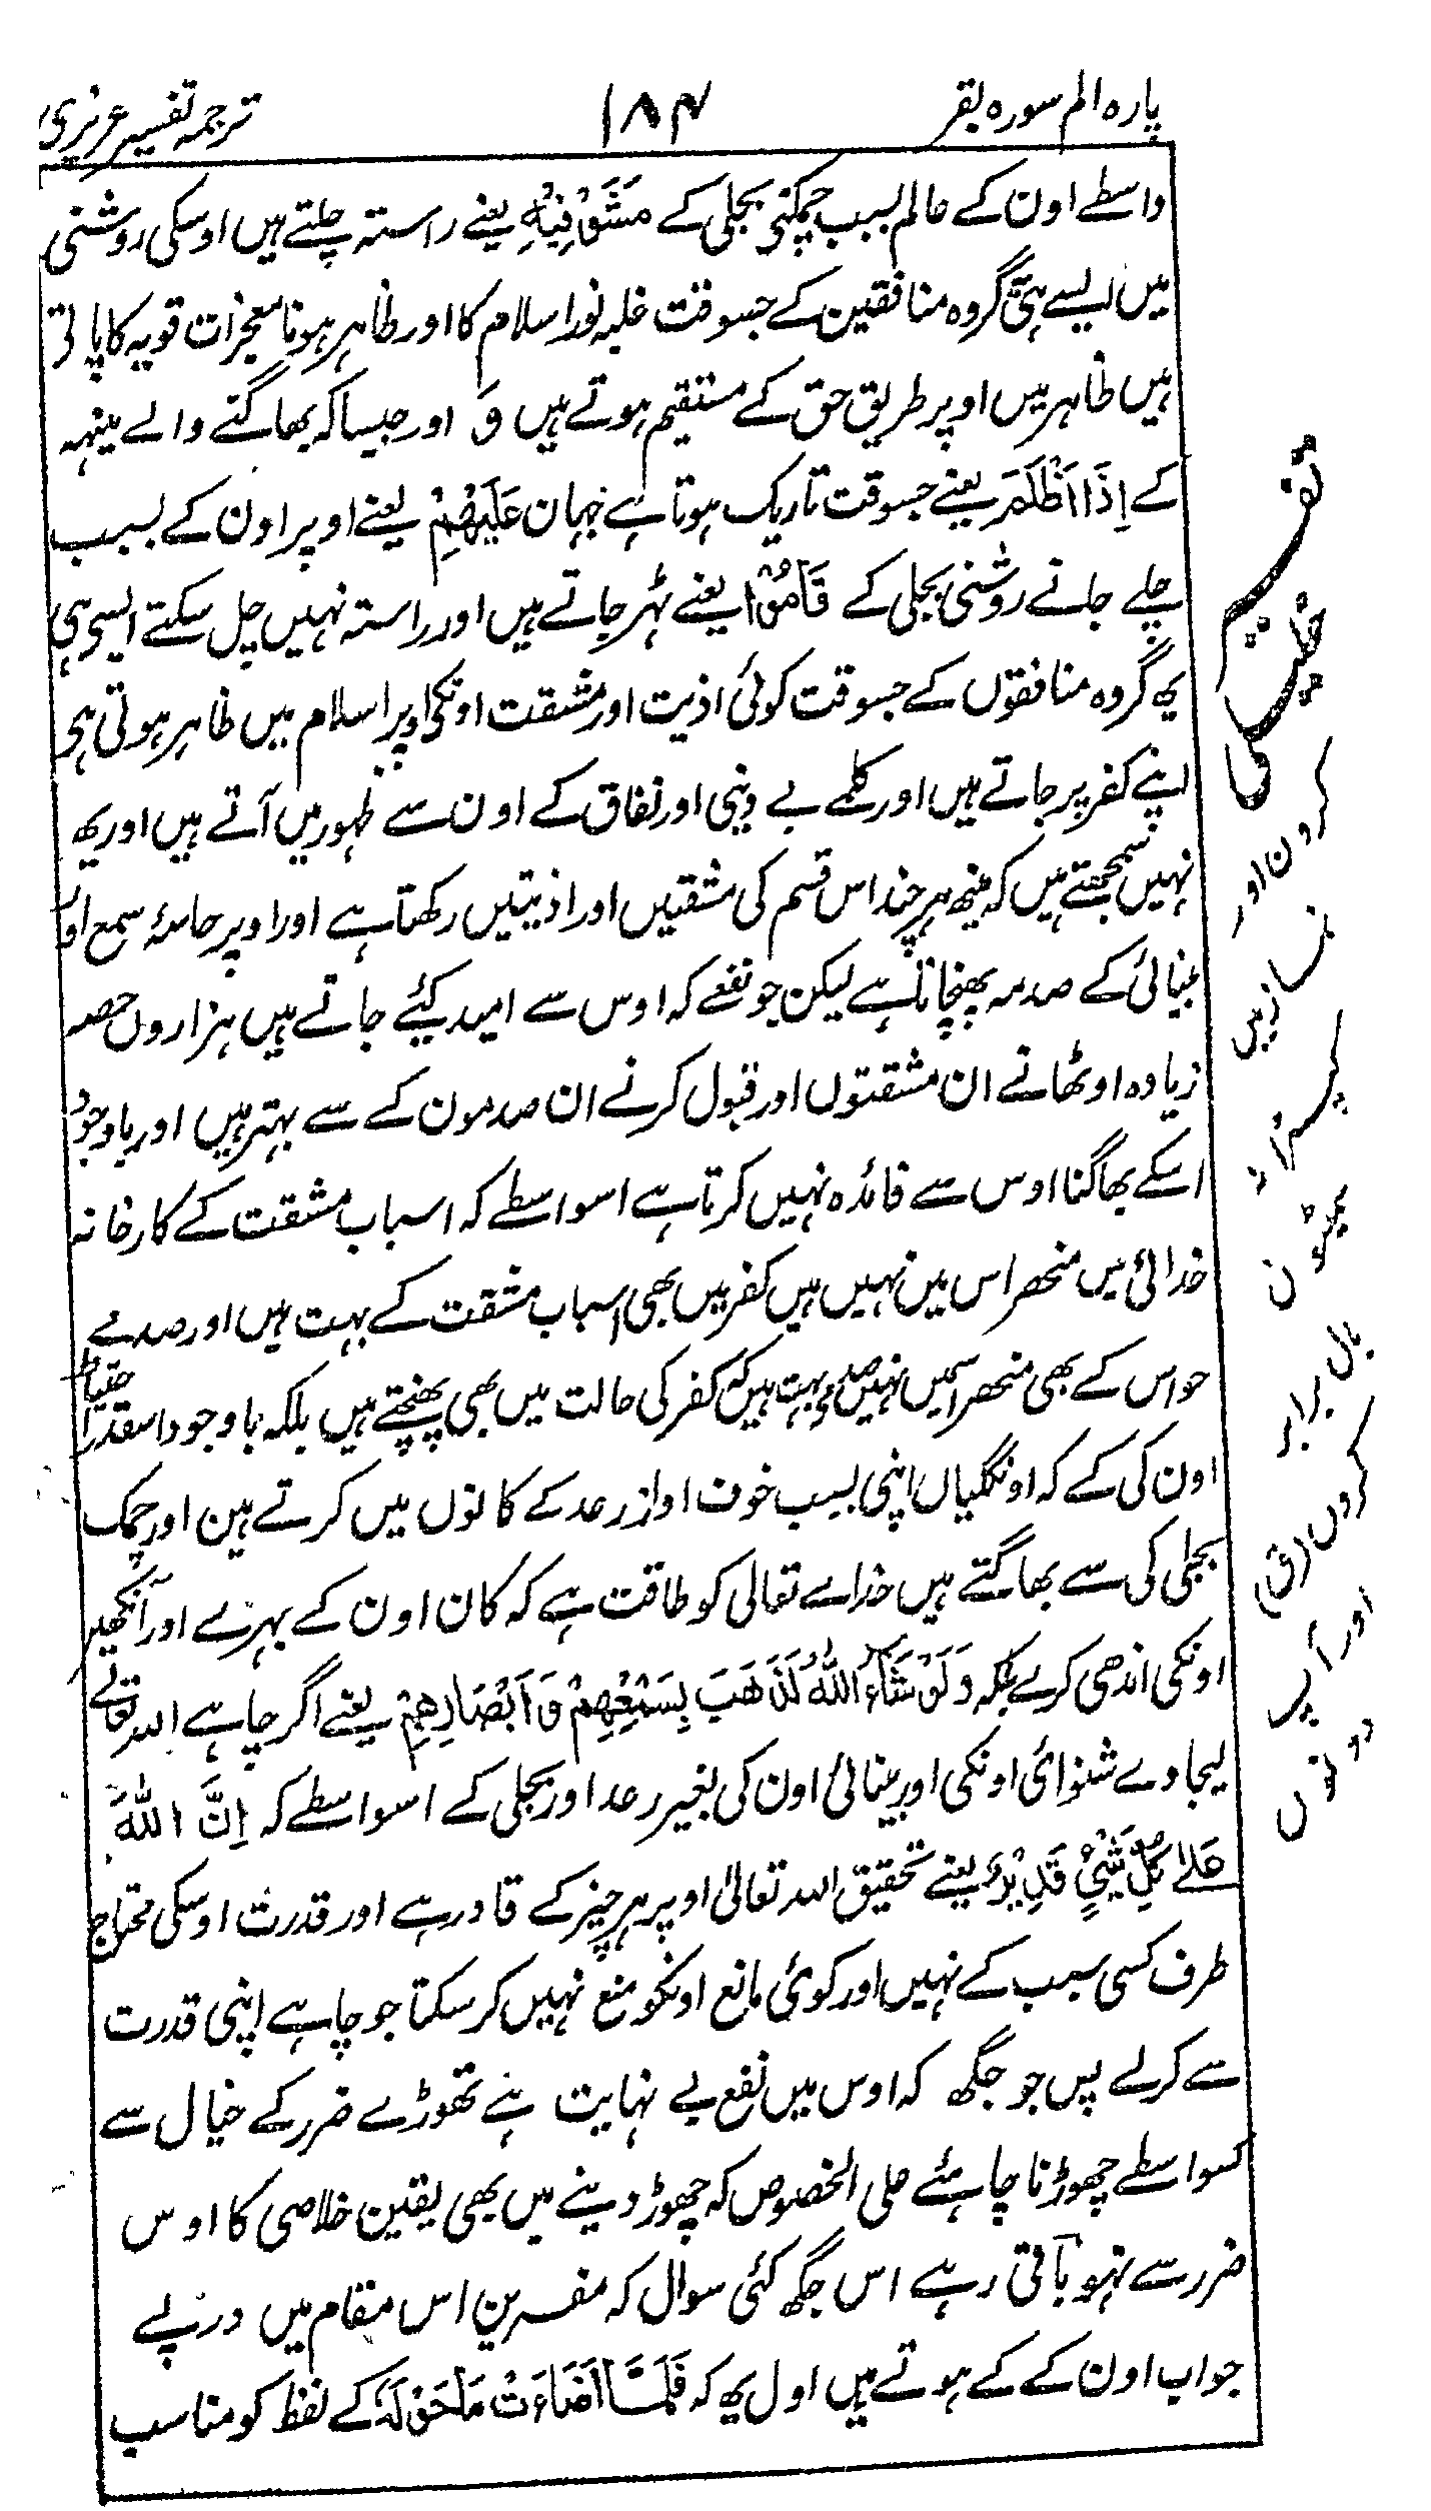 پارہ الم سورہ بقر ۱۸۴ ترجمہ تفسیر عزیزی
واسطے اون کے عالم بسبب چمکنی بجلی کے مَشَوْا فِيْهِ یعنے راستہ چلتے ہیں اوسکی روشنی
میں ایسے ہی گروہ منافقین کے جسوقت غلبہ نور اسلام کا اور ظاہر ہونا معجزات قویہ کا پاتی
ہیں ظاہر میں اوپر طریق حق کے مستقیم ہوتے ہیں وَ اور جیسا کہ بھاگنے والے مینہہ
کے اِذَا اَظْلَمَ یعنے جسوقت تاریک ہوتا ہے جہان عَلَيْهِمْ یعنے اوپر اون کے بسبب
چلے جانے روشنی بجلی کے قَامُوْا یعنے ٹہر جاتے ہیں اور راستہ نہیں چل سکتے ایسی ہی
یہ گروہ منافقوں کے جسوقت کوئی اذیت اور مشقت اونکی اوپر اسلام میں ظاہر ہوتی ہی
اپنے کفر پر جاتے ہیں اور کلمے بے دینی اور نفاق کے اون سے ظہور میں آتے ہیں اور یہ
نہیں سمجھتے ہیں کہ مینھ ہر چند اس قسم کی مشقتیں اور اذیتیں رکھتا ہے اور اوپر حاسۂ سمع اور
بینائی کے صدمہ پھنچاتا ہے لیکن جو نفعے کہ اوس سے امید کیئے جاتے ہیں ہزاروں حصہ
زیادہ اوٹھانے ان مشقتوں اور قبول کرنے ان صدمون کے سے بہتر ہیں اور باوجود
اسکے بھاگنا اوس سے فائدہ نہیں کرتا ہے اسواسطے کہ اسباب مشقت کے کارخانہ
خدائی میں منحصر اس میں نہیں ہیں کفر میں بھی اسباب مشقت کے بہت ہیں اور صدمے
حواس کے بھی منحصر اسمیں نہیں صدمے بہت ہیں کہ کفر کی حالت میں بھی پھنچتے ہیں بلکہ باوجود اسقدر احتیاط
اون کی کے کہ اونگلیاں اپنی بسبب خوف اواز رعد کے کانوں میں کرتے ہین اور چمک
بجلی کی سے بھاگتے ہیں خداے تعالی کو طاقت ہے کہ کان اون کے بہرے اور آنکھیں
اونکی اندھی کرے بلکہ وَلَوْ شَآءَ اللّٰهُ لَذَهَبَ بِسَمْعِهِمْ وَاَبْصَارِهِمْ یعنے اگر چاہے اللہ تعالے
لیجاوے شنوائی اونکی اور بینائی اون کی بغیر رعد اور بجلی کے اسواسطے کہ اِنَّ اللّٰهَ
عَلٰے كُلِّ شَيْءٍ قَدِيْرٌ یعنے تحقیق اللہ تعالیٰ اوپر ہر چیز کے قادر ہے اور قدرت اوسکی محتاج
طرف کسی سبب کے نہیں اور کوئی مانع اونکو منع نہیں کر سکتا جو چاہے اپنی قدرت
سے کرلے پس جو جگھ کہ اوس میں نفع بے نہایت ہے تھوڑے ضرر کے خیال سے
کسواسطے چھوڑنا چاہئے علی الخصوص کہ چھوڑ دینے میں بھی یقین خلاصی کا اوس
ضرر سے نہو باقی رہے اس جگھ کئی سوال کہ مفسرین اس مقام میں درپے
جواب اون کے کے ہوتے ہیں اول یہ کہ فَلَمَّا اَضَاءَتْ مَا حَوْلَهٗ کے لفظ کو مناسب